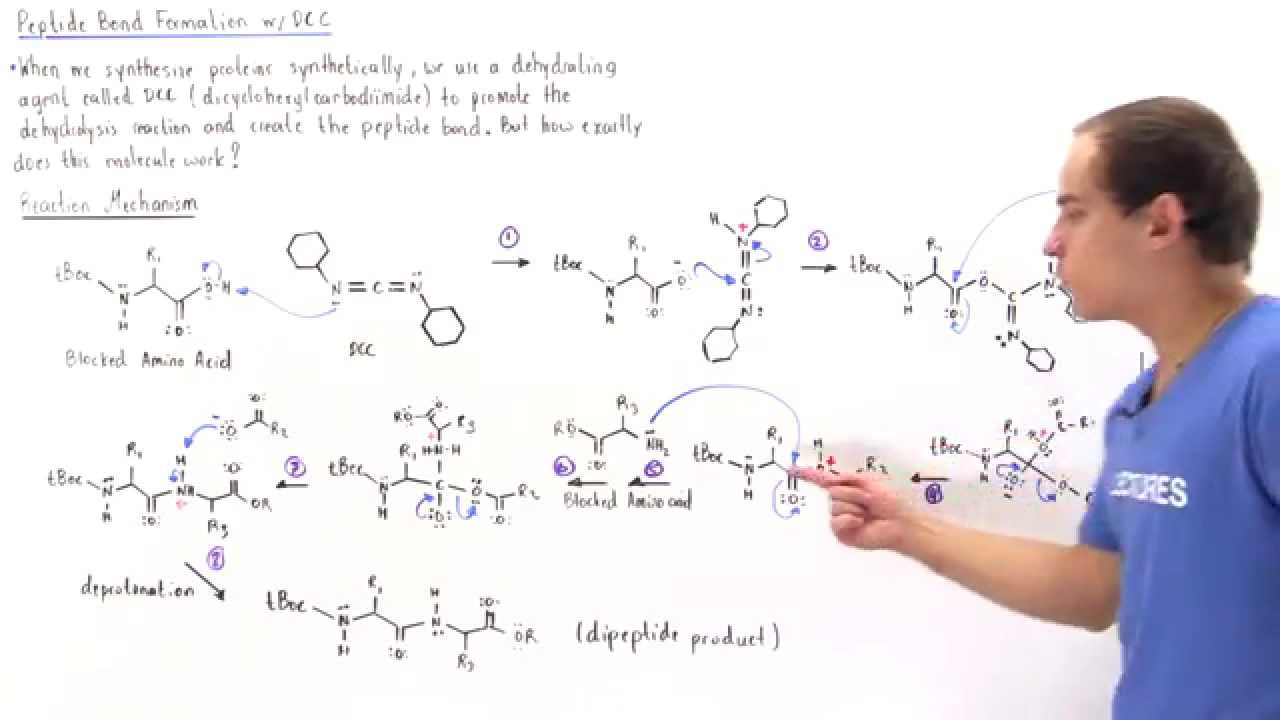 Peptide Bond Formation w/ DCC
• When we synthesize proteins synthetically, we use a dehydrating
agent called DCC (dicyclohexylcarbodiimide) to promote the
dehydrolysis reaction and create the peptide bond. But how exactly
does this molecule work?
Reaction Mechanism
tBoc
R₁
N
H
O
H
:O:
Blocked Amino Acid
N = C = N
DCC
①
tBoc
R₁
N
H
O
:O:
H
N
+
C
N:
②
tBoc
R₁
N
H
O
:O:
C
N
N
tBoc
R₁
N
H
H
NH
+
O
R₃
OR
O
R₂
:O:
⑦
RO
O
R₃
+
H-N-H
tBoc
R₁
N
H
C
O
O
R₂
O
⑥
⑤
RO
R₃
NH₂
:O:
Blocked Amino acid
tBoc
R₁
N
H
:O:
H
+
R₂
④
tBoc
R₁
N
H
O
R
LECTURES
deprotonation
tBoc
R₁
N
H
:O:
H
N
R₃
:O:
OR
(dipeptide product)